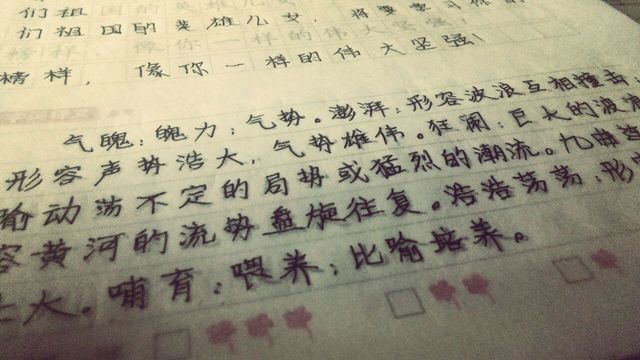 们祖国的英雄儿女，将要学习你的
榜样，像你一样的伟大坚强！
气魄：魄力；气势。澎湃：形容波浪互相撞击
形容声势浩大，气势雄伟。狂澜：巨大的波
喻动荡不定的局势或猛烈的潮流。九曲
容黄河的流势盘旋往复。浩浩荡荡：形
大。哺育：喂养；比喻培养。